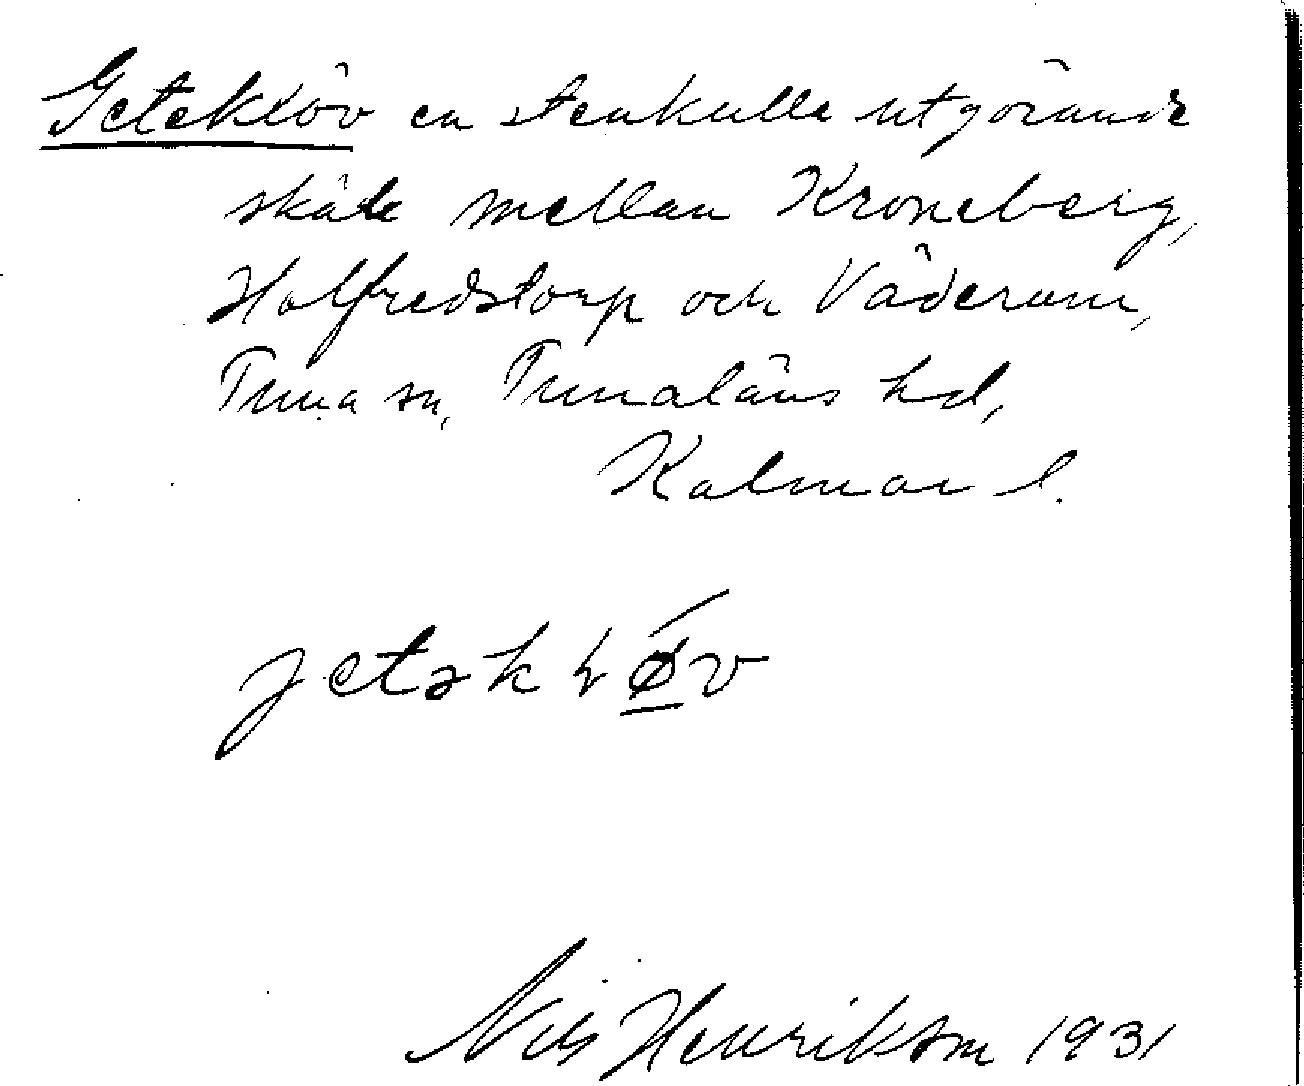 Geteklöv en stenkulle utgörande
skäle mellan Kroneberg,
Halfredstorp och Väderum,
Tuna sn, Tunaläns hd,
Kalmar l.
jetək
Nils Henrikson 1931